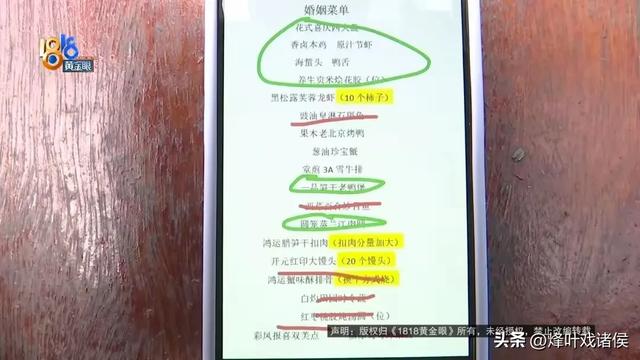 1818
黄金眼
婚姻菜单
花式喜庆四大盘
香卤本鸡 原汁节虾
海蜇头 鸭舌
养生贡米烩花胶（位）
黑松露芙蓉龙虾（10个柿子）
豉油皇淋石斑鱼
果木老北京烤鸭
葱油珍宝蟹
堂煎3A雪牛排
一品笋干老鸭煲
圆笼蒸兰江肉圆
鸿运腊笋干扣肉（扣肉分量加大）
开元红印大馒头（20个馒头）
鸿运蟹味酥排骨（换个方式烧）
白灼
红枣 （位）
彩凤报喜双美点
声明：版权归《1818黄金眼》所有，未经授权，禁止改编转载
头条 @烽叶戏诸侯